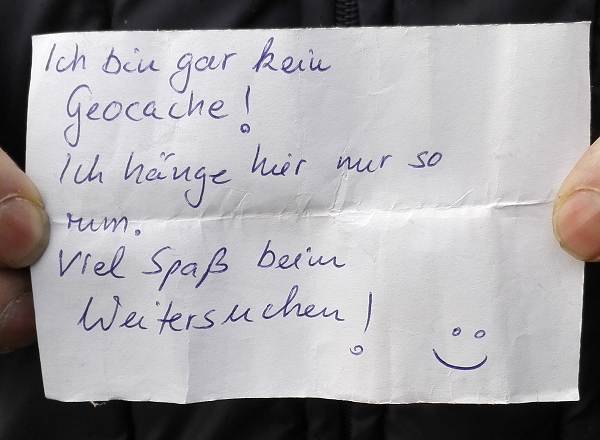 Ich bin gar kein
Geocache!
Ich hänge hier nur so
rum.
Viel Spaß beim
Weitersuchen!